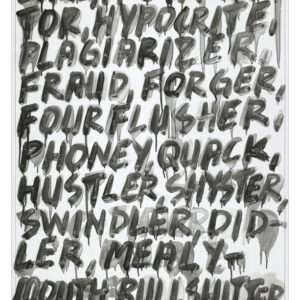 TOR, HYPOCRITE,
PLAGIARIZER,
FRAUD, FORGER,
FOURFLUSHER,
PHONEY, QUACK,
HUSTLER SHYSTER,
SWINDLER DID-
LER, MEALY-
MOUTH, BULLSHITTER